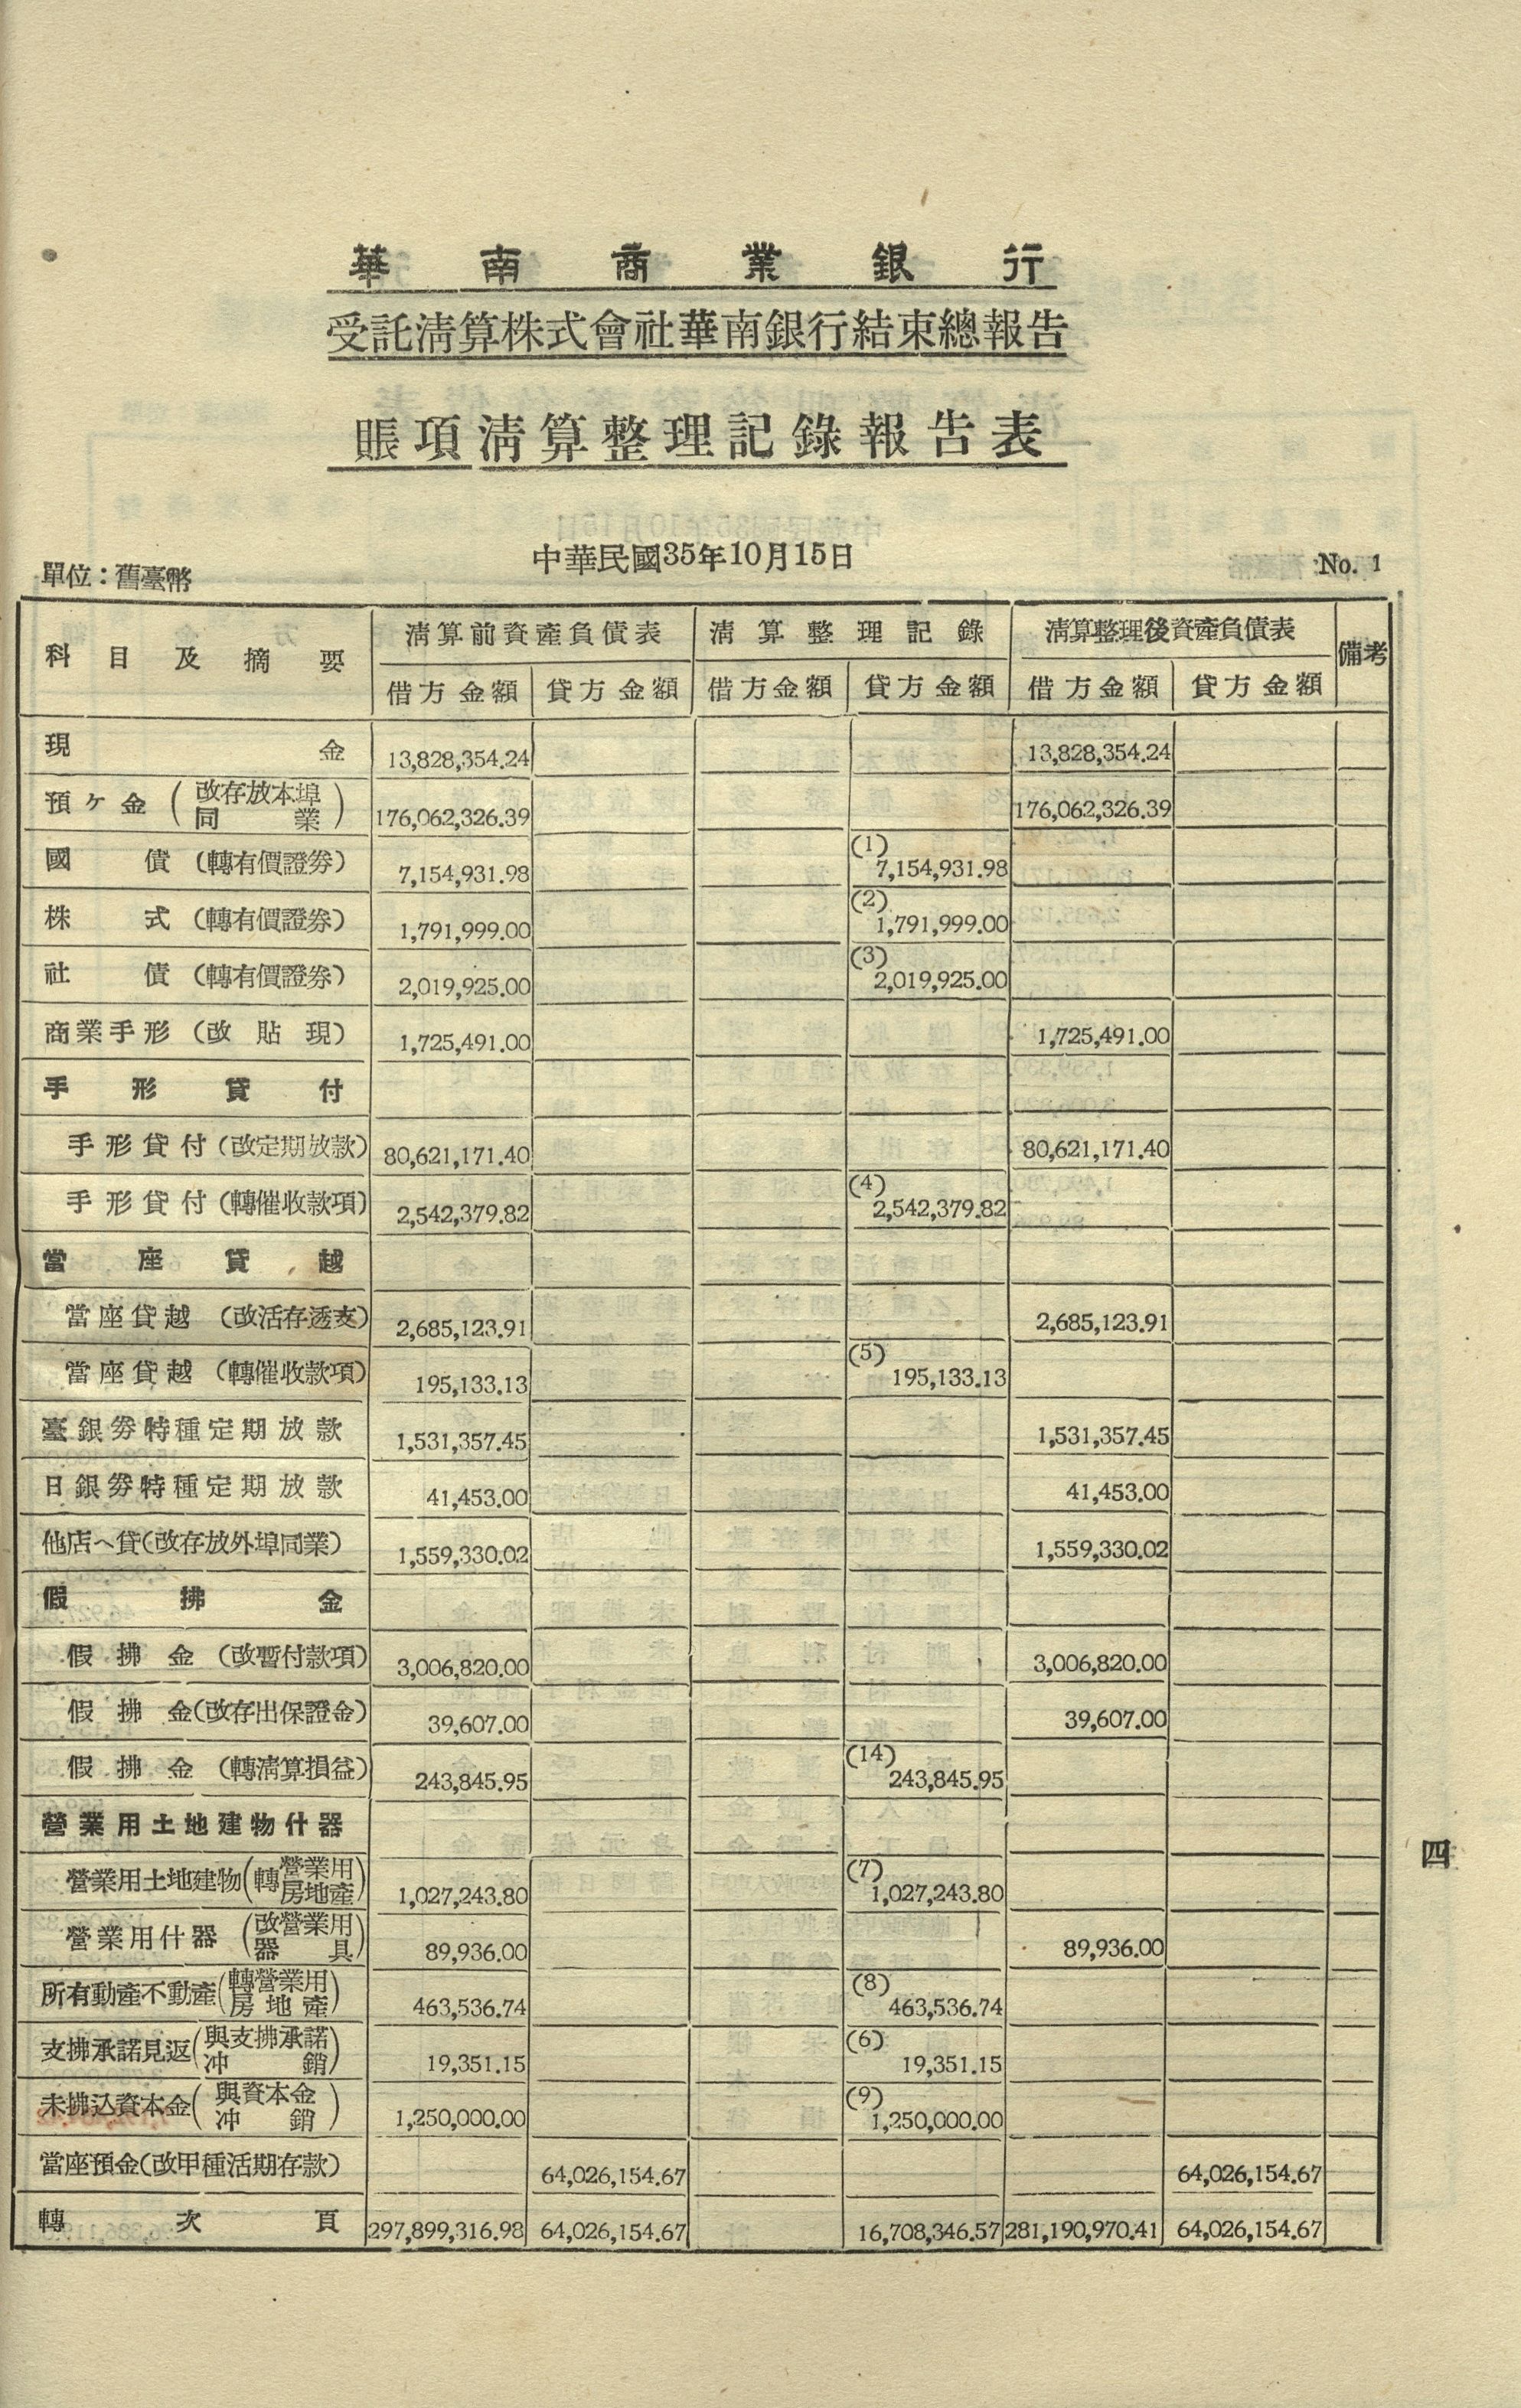 華南商業銀行
受託淸算株式會社華南銀行結束總報告
賬項淸算整理記錄報告表
中華民國35年10月15日
單位：舊臺幣
No. 1
科目及摘要 淸算前資產負債表 淸算整理記錄 淸算整理後資產負債表 備考
借方金額 貸方金額 借方金額 貸方金額 借方金額 貸方金額
現金 13,828,354.24 13,828,354.24
預ケ金（改存放本埠同業） 176,062,326.39 176,062,326.39
國債（轉有價證券） 7,154,931.98 (1) 7,154,931.98
株式（轉有價證券） 1,791,999.00 (2) 1,791,999.00
社債（轉有價證券） 2,019,925.00 (3) 2,019,925.00
商業手形（改貼現） 1,725,491.00 1,725,491.00
手形貸付
手形貸付（改定期放款） 80,621,171.40 80,621,171.40
手形貸付（轉催收款項） 2,542,379.82 (4) 2,542,379.82
當座貸越
當座貸越（改活存透支） 2,685,123.91 2,685,123.91
當座貸越（轉催收款項） 195,133.13 (5) 195,133.13
臺銀券特種定期放款 1,531,357.45 1,531,357.45
日銀券特種定期放款 41,453.00 41,453.00
他店へ貸（改存放外埠同業） 1,559,330.02 1,559,330.02
假拂金
假拂金（改暫付款項） 3,006,820.00 3,006,820.00
假拂金（改存出保證金） 39,607.00 39,607.00
假拂金（轉淸算損益） 243,845.95 (14) 243,845.95
營業用土地建物什器
營業用土地建物（轉營業用房地產） 1,027,243.80 (7) 1,027,243.80
營業用什器（改營業用器具） 89,936.00 89,936.00
所有動產不動產（轉營業用房地產） 463,536.74 (8) 463,536.74
支拂承諾見返（與支拂承諾冲銷） 19,351.15 (6) 19,351.15
未拂込資本金（與資本金冲銷） 1,250,000.00 (9) 1,250,000.00
當座預金（改甲種活期存款） 64,026,154.67 64,026,154.67
轉次頁 297,899,316.98 64,026,154.67 16,708,346.57 281,190,970.41 64,026,154.67
四